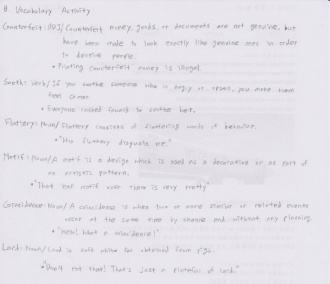 B. Vocabulary Activity
Counterfeit: ADJ/ Counterfeit money, goods, or documents are not genuine, but
have been made to look exactly like genuine ones in order
to deceive people.
• Printing counterfeit money is illegal.
Sooth: Verb/ If you soothe someone who is angry or upset, you make them
feel calmer.
• Everyone rushed round to soothe her.
Flattery: Noun/ Flattery consists of flattering words or behavior.
• "His flattery disgusts me."
Motif: Noun/ A motif is a design which is used as a decoration or as part of
an artistic pattern.
• "That motif over there is very pretty"
Coincidence: Noun/ A coincidence is when two or more similar or related events
occur at the same time by chance and without any planning.
• "What a coincidence!"
Lard: Noun/ Lard is soft white fat obtained from pigs.
• "Don't eat that! That's just a plateful of lard."